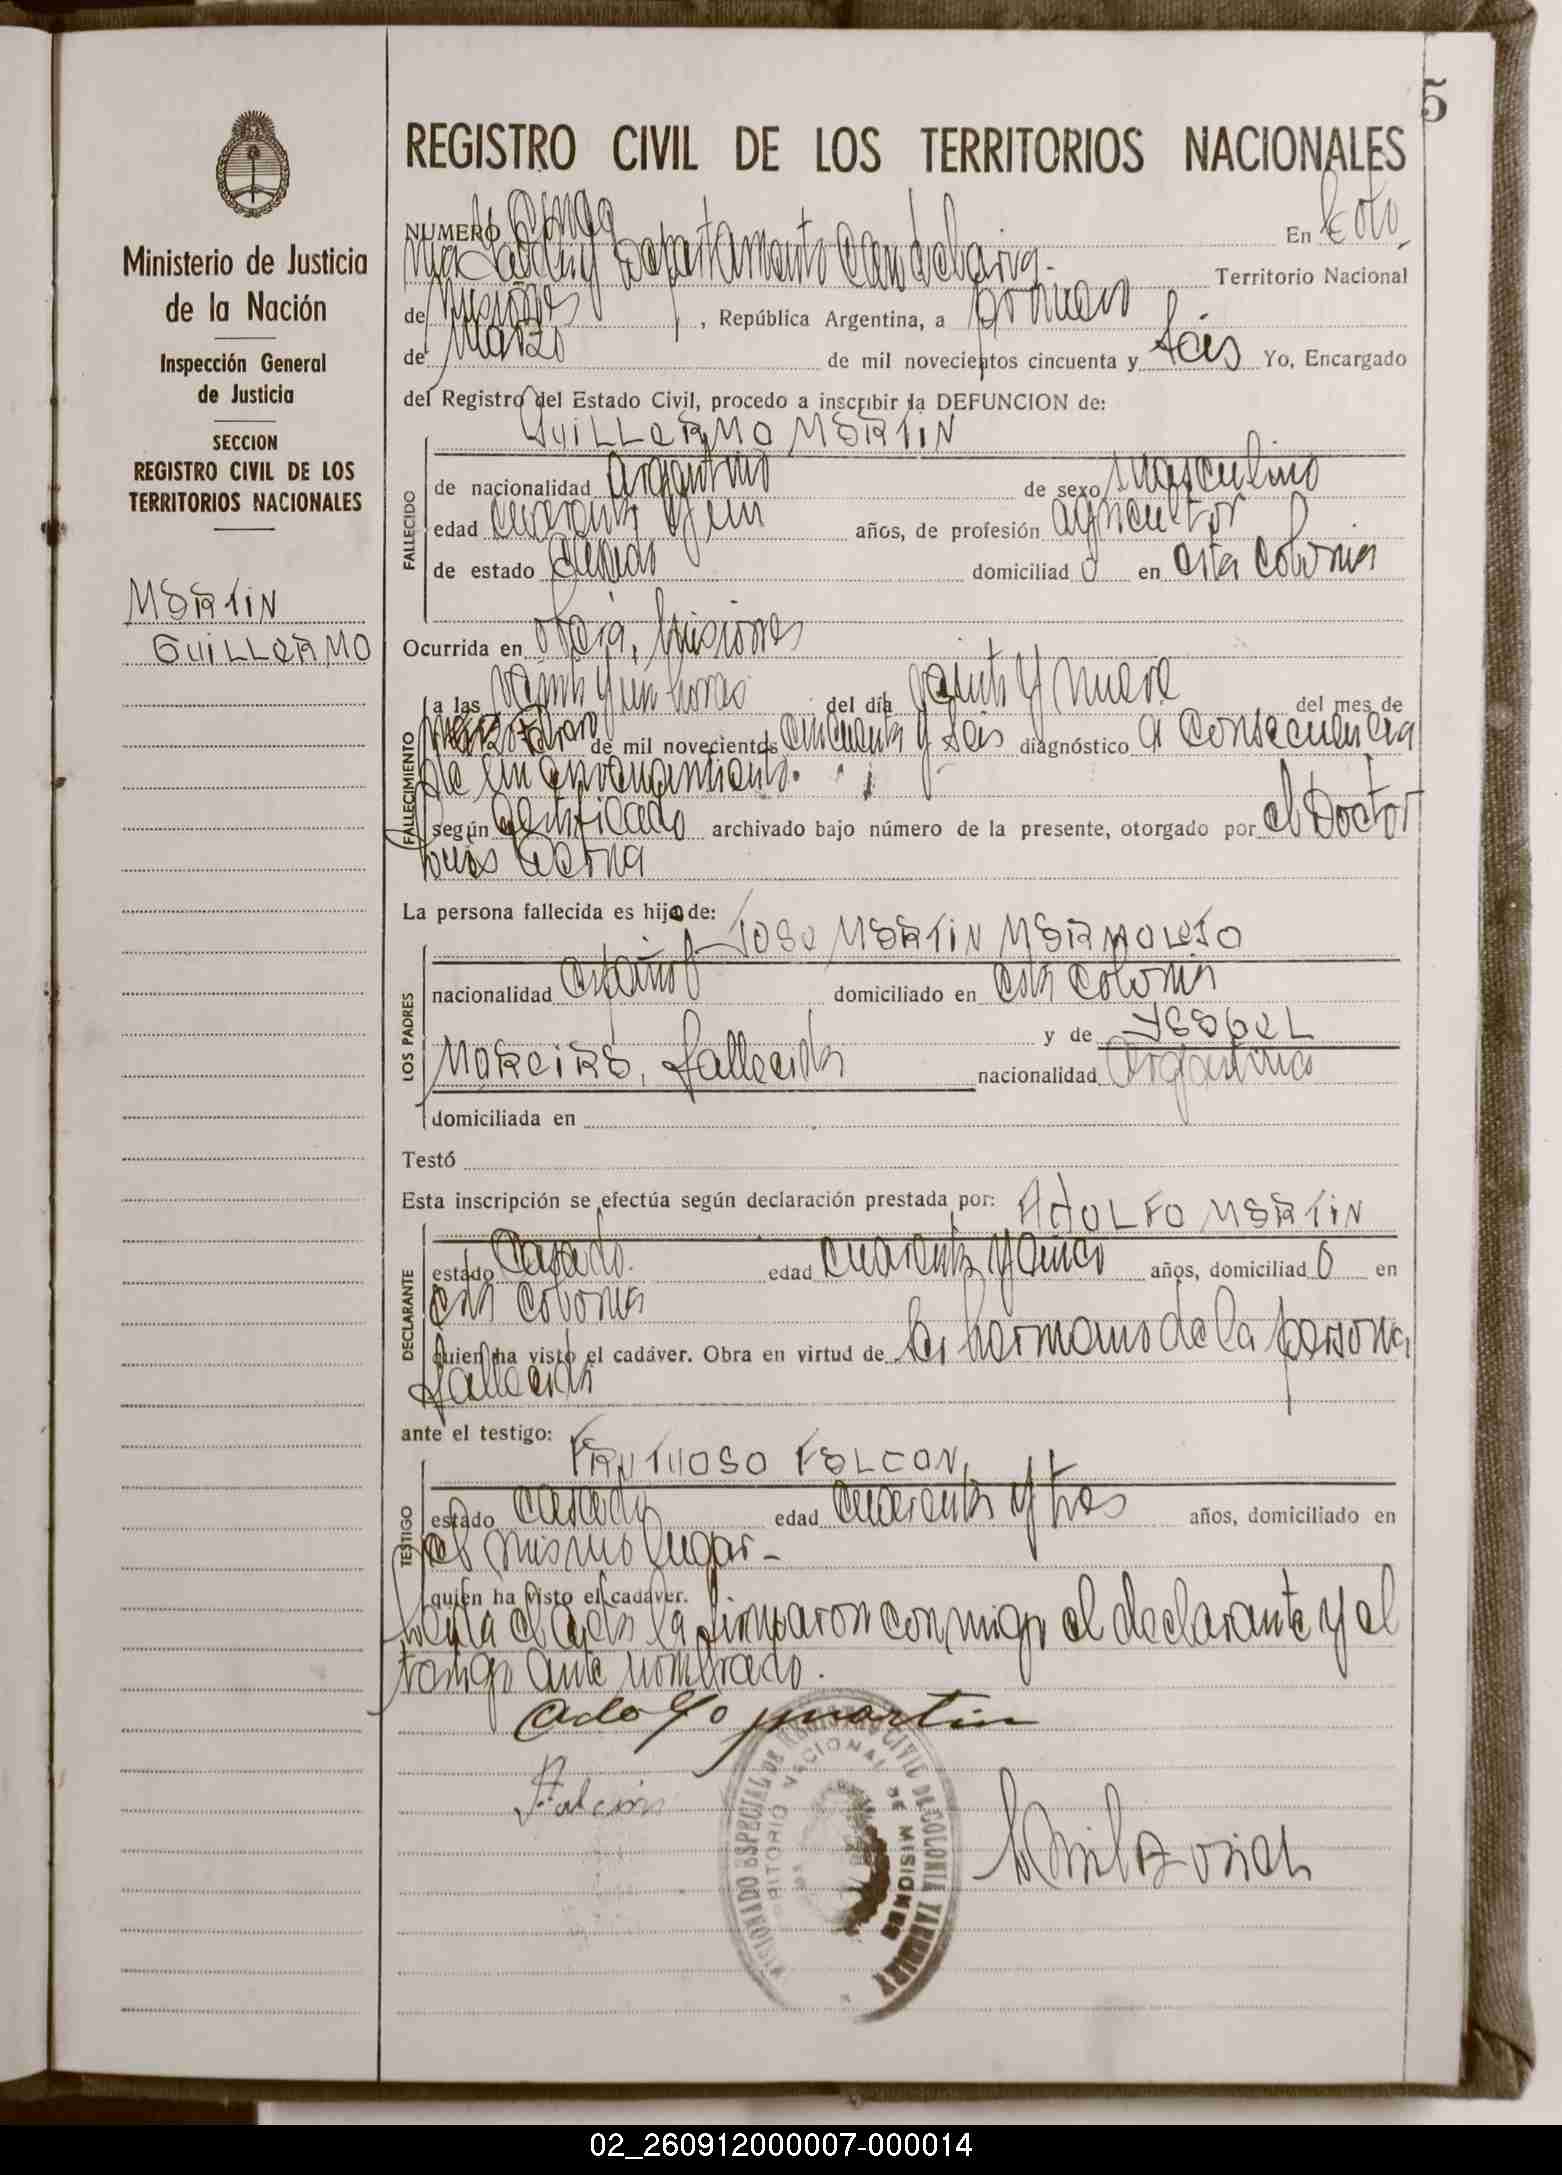 5
REGISTRO CIVIL DE LOS TERRITORIOS NACIONALES
Ministerio de Justicia
de la Nación
Inspección General
de Justicia
SECCION
REGISTRO CIVIL DE LOS
TERRITORIOS NACIONALES
MARTIN
GUILLERMO
NUMERO cinco En Colo,
nia Yabebiry Departamento Candelaria.- Territorio Nacional
de Misiones, República Argentina, a primero
de Marzo de mil novecientos cincuenta y seis Yo, Encargado
del Registro del Estado Civil, procedo a inscribir la DEFUNCION de:
GUILLERMO MARTIN
FALLECIDO
de nacionalidad argentino de sexo masculino
edad cuarenta y un años, de profesión agricultor
de estado domiciliad o en esta colonia
Ocurrida en Misiones
FALLECIMIENTO
a las veinte y un horas del día veinte y nueve del mes de
de mil novecientos cincuenta y seis diagnóstico a consecuencia
de un
según certificado archivado bajo número de la presente, otorgado por el Doctor
La persona fallecida es hijo de: JOSE MARTIN MARMOLEJO
LOS PADRES
nacionalidad español domiciliado en esta colonia
y de YSABEL
MOREIRA, fallecida nacionalidad argentina
domiciliada en
Testó
Esta inscripción se efectúa según declaración prestada por: ADOLFO MARTIN
DECLARANTE
estado casado. edad cuarenta y cinco años, domiciliad o en
esta colonia
quien ha visto el cadáver. Obra en virtud de ser hermano de la persona
fallecida
ante el testigo: FRUTUOSO FALCON,
TESTIGO
estado casado edad cuarenta y tres años, domiciliado en
el mismo lugar.-
quien ha visto el cadáver.
Leida el acta la firmaron conmigo el declarante y el
testigo ante nombrado.
Adolfo martin
Falcon
REGISTRO CIVIL DE COLONIA YABEBIRY
TERRITORIO NACIONAL DE MISIONES
02_260912000007-000014